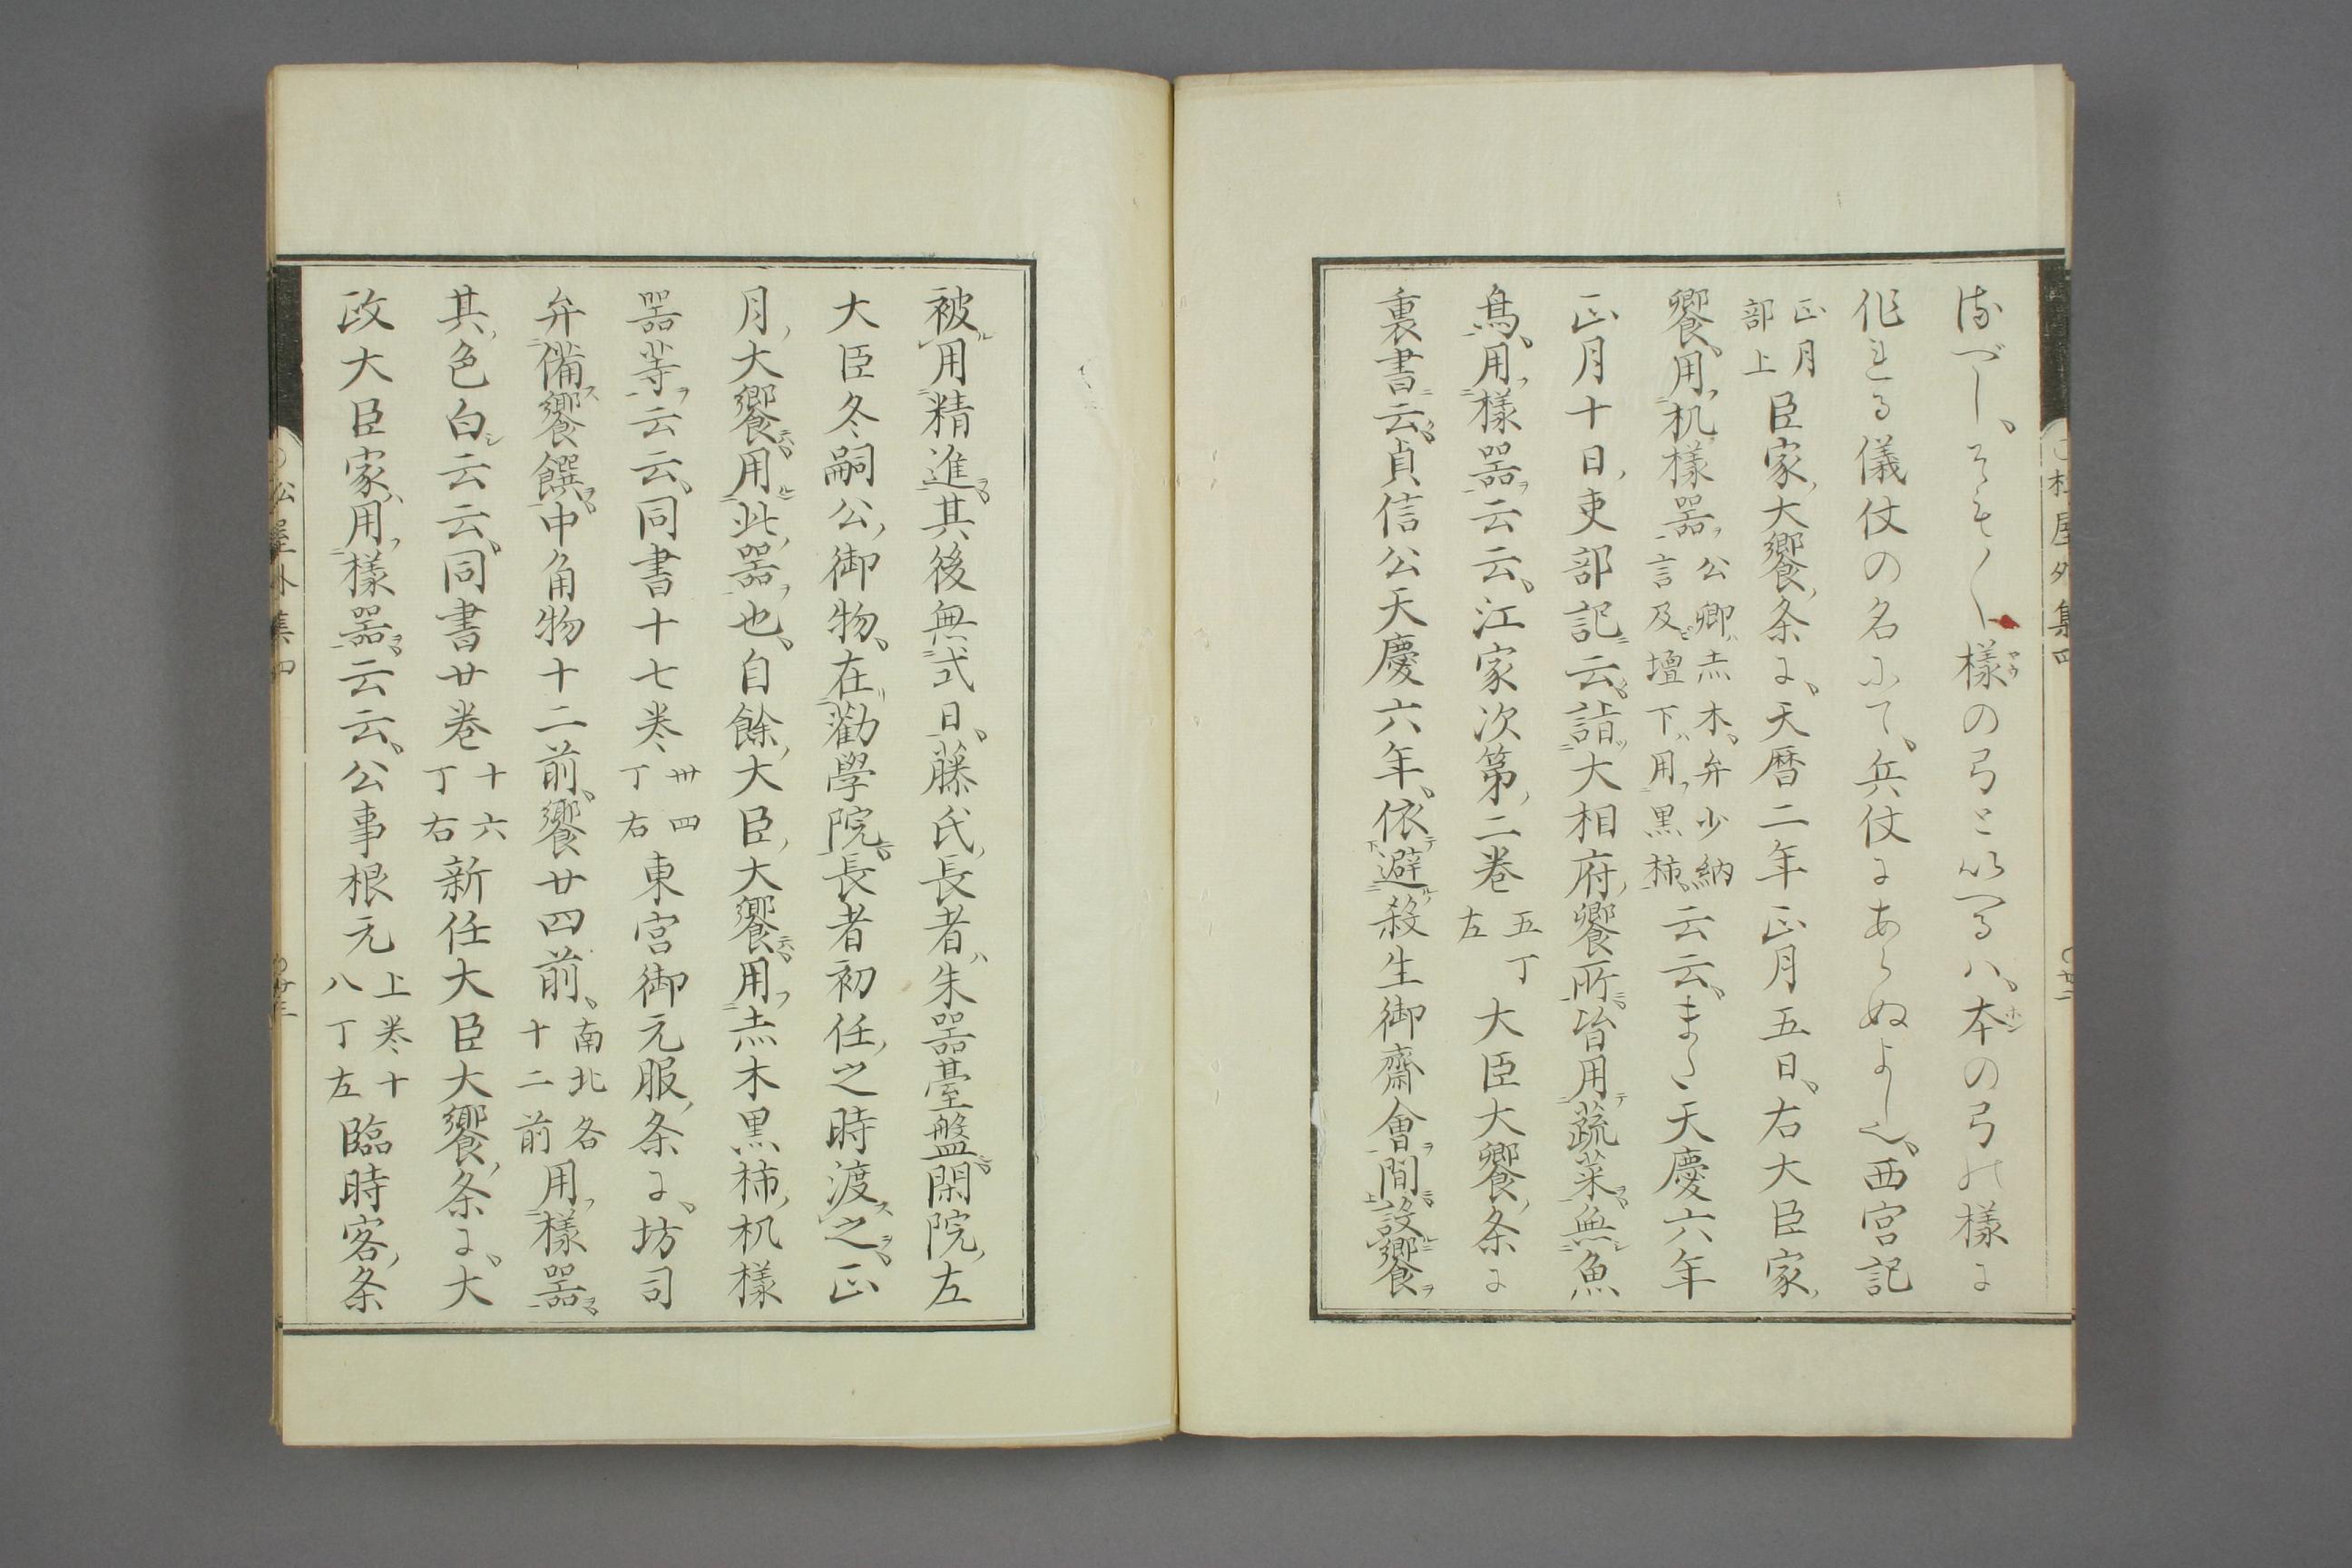 べし、そも〳〵様の弓といへるハ、本の弓の様に
作れる儀仗の名にて、兵仗にあらぬよし也、西宮記
正月部上臣家大饗条に、天暦二年正月五日、右大臣家
饗、用机様器公卿赤木、弁少納言及壇下用黒柿云云、また天慶六年
正月十日、吏部記云、詣大相府饗所、皆用蔬菜無魚
鳥、用様器云云、江家次第二巻五丁左大臣大饗条に
裏書云、貞信公天慶六年、依避殺生御齋會間、設饗
被用精進、其後無式日、藤氏長者ハ朱器臺盤、閑院左
大臣冬嗣公御物、在勸學院、長者初任之時渡之、正
月大饗用此器也、自餘大臣大饗用赤木黒柿机様
器等云云、同書十七巻丗四丁右東宮御元服条に、坊司
弁備饗饌、中角物十二前、饗廿四前、南北各十二前用様器、
其色白云云、同書廿巻十六丁右新任大臣大饗条に、大
政大臣家用様器云云、公事根元上巻十八丁左臨時客条
松屋外集四